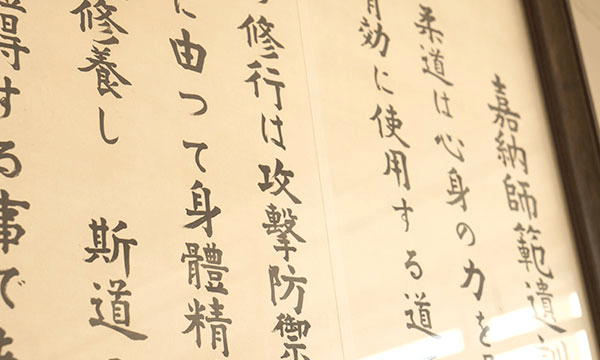 嘉納師範遺訓
柔道は心身の力を
有効に使用する道
修行は攻擊防禦
に由つて身體精
修養し 斯道
得する事で